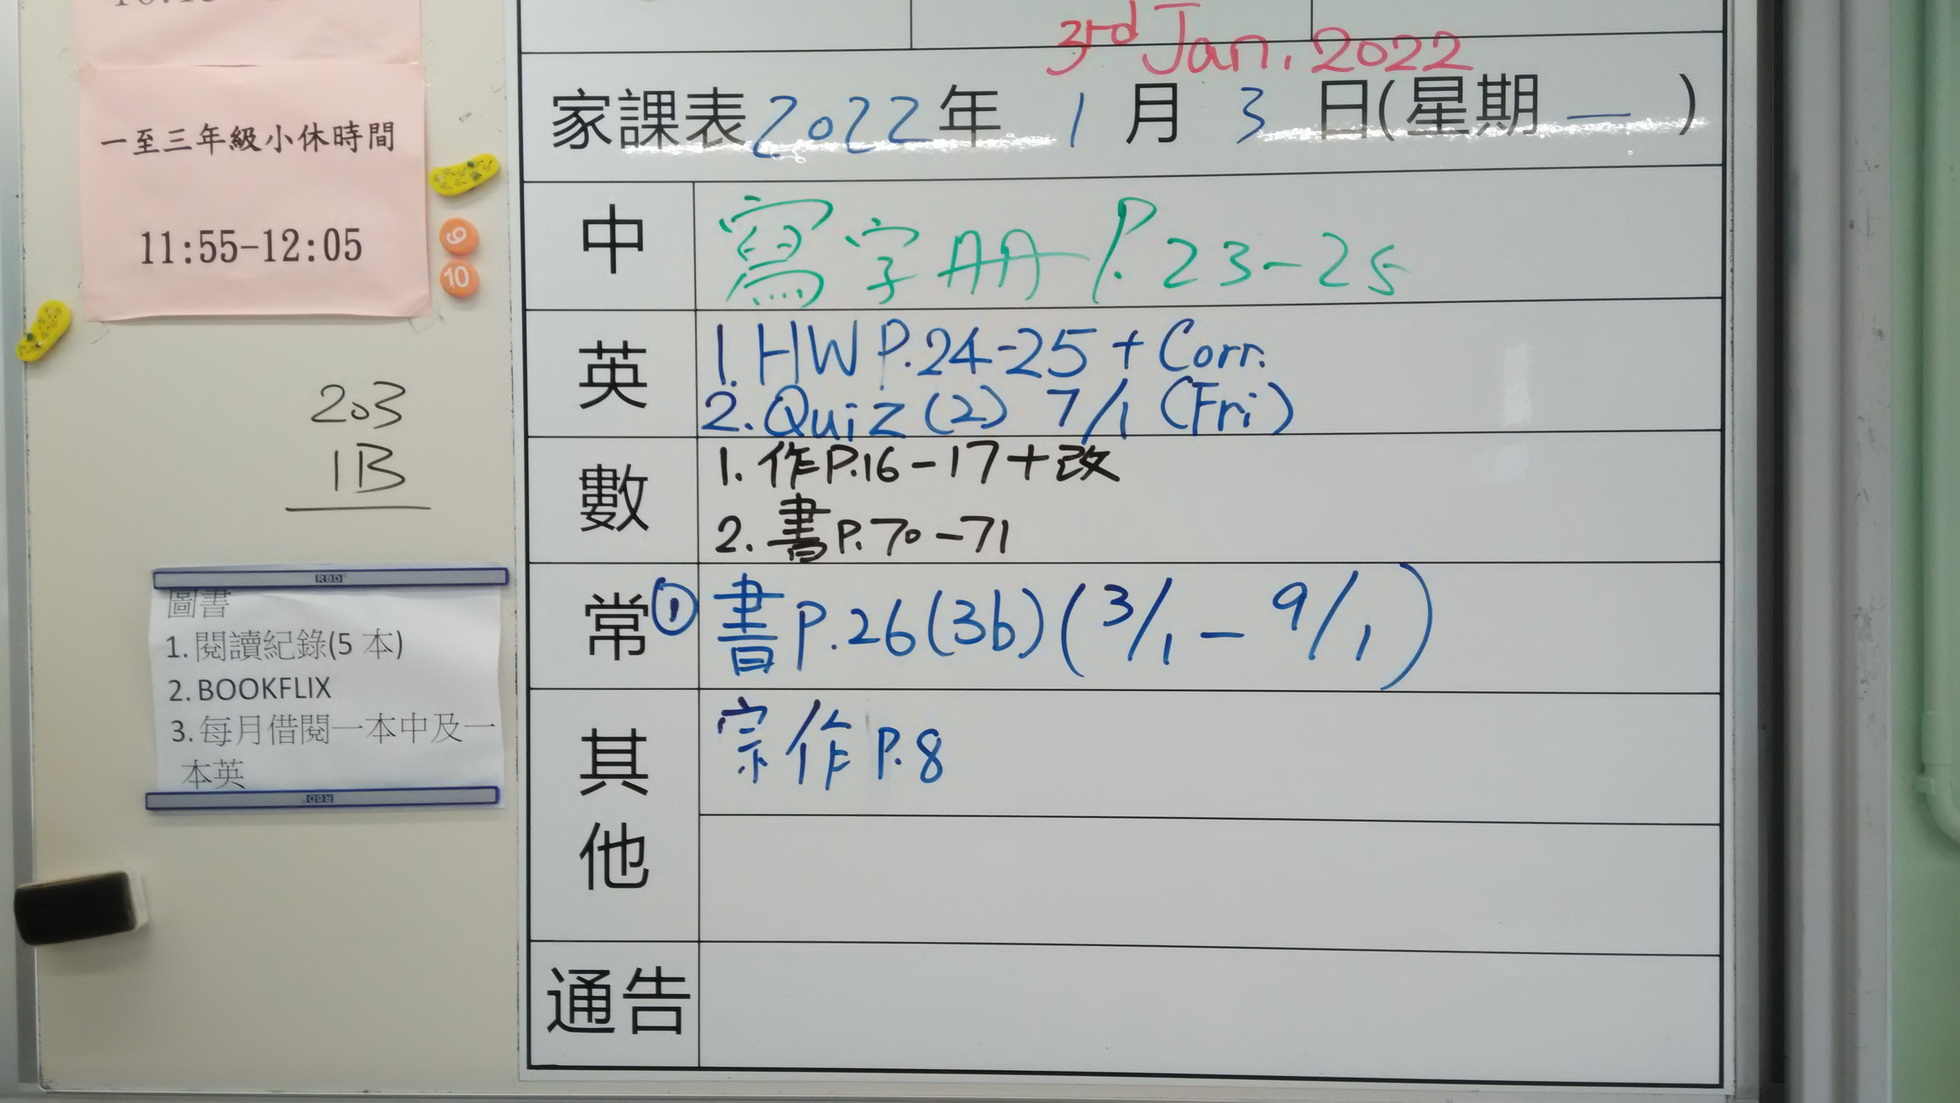 一至三年級小休時間
11:55-12:05
9
10
203
1B
RBD
圖書
1. 閱讀紀錄(5 本)
2. BOOKFLIX
3. 每月借閱一本中及一
本英
RBD
3rd Jan. 2022
家課表 2022 年 1 月 3 日(星期 一 )
中 寫字册 P.23-25
英 1. HW P.24-25 + Corr.
2. Quiz (2) 7/1 (Fri)
數 1. 作P.16-17+改
2. 書P.70-71
常 ① 書P.26(3b)(3/1-9/1)
其他 宗作P.8
通告